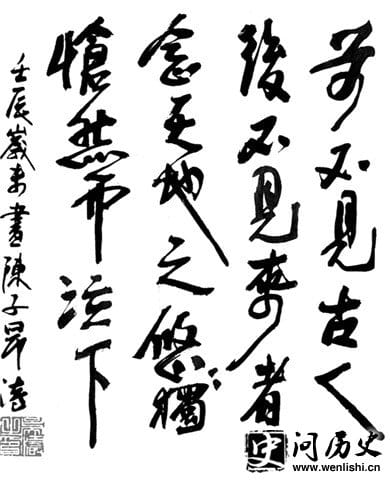 前不見古人
後不見來者
念天地之悠々獨
愴然而涕下
壬辰歲末書陳子昂詩
史 问历史
www.wenlishi.cn